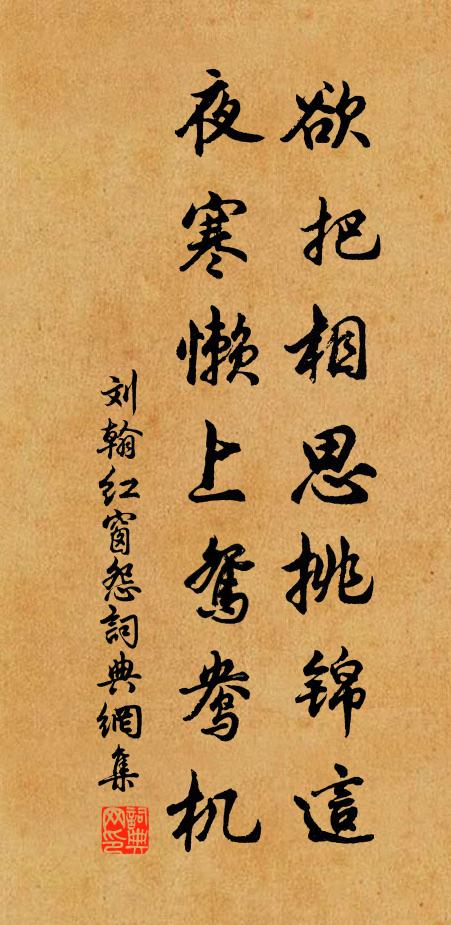 欲把相思挑锦這
夜寒懒上鸳鸯机
刘翰红窗怨詞典網集
詞典网印